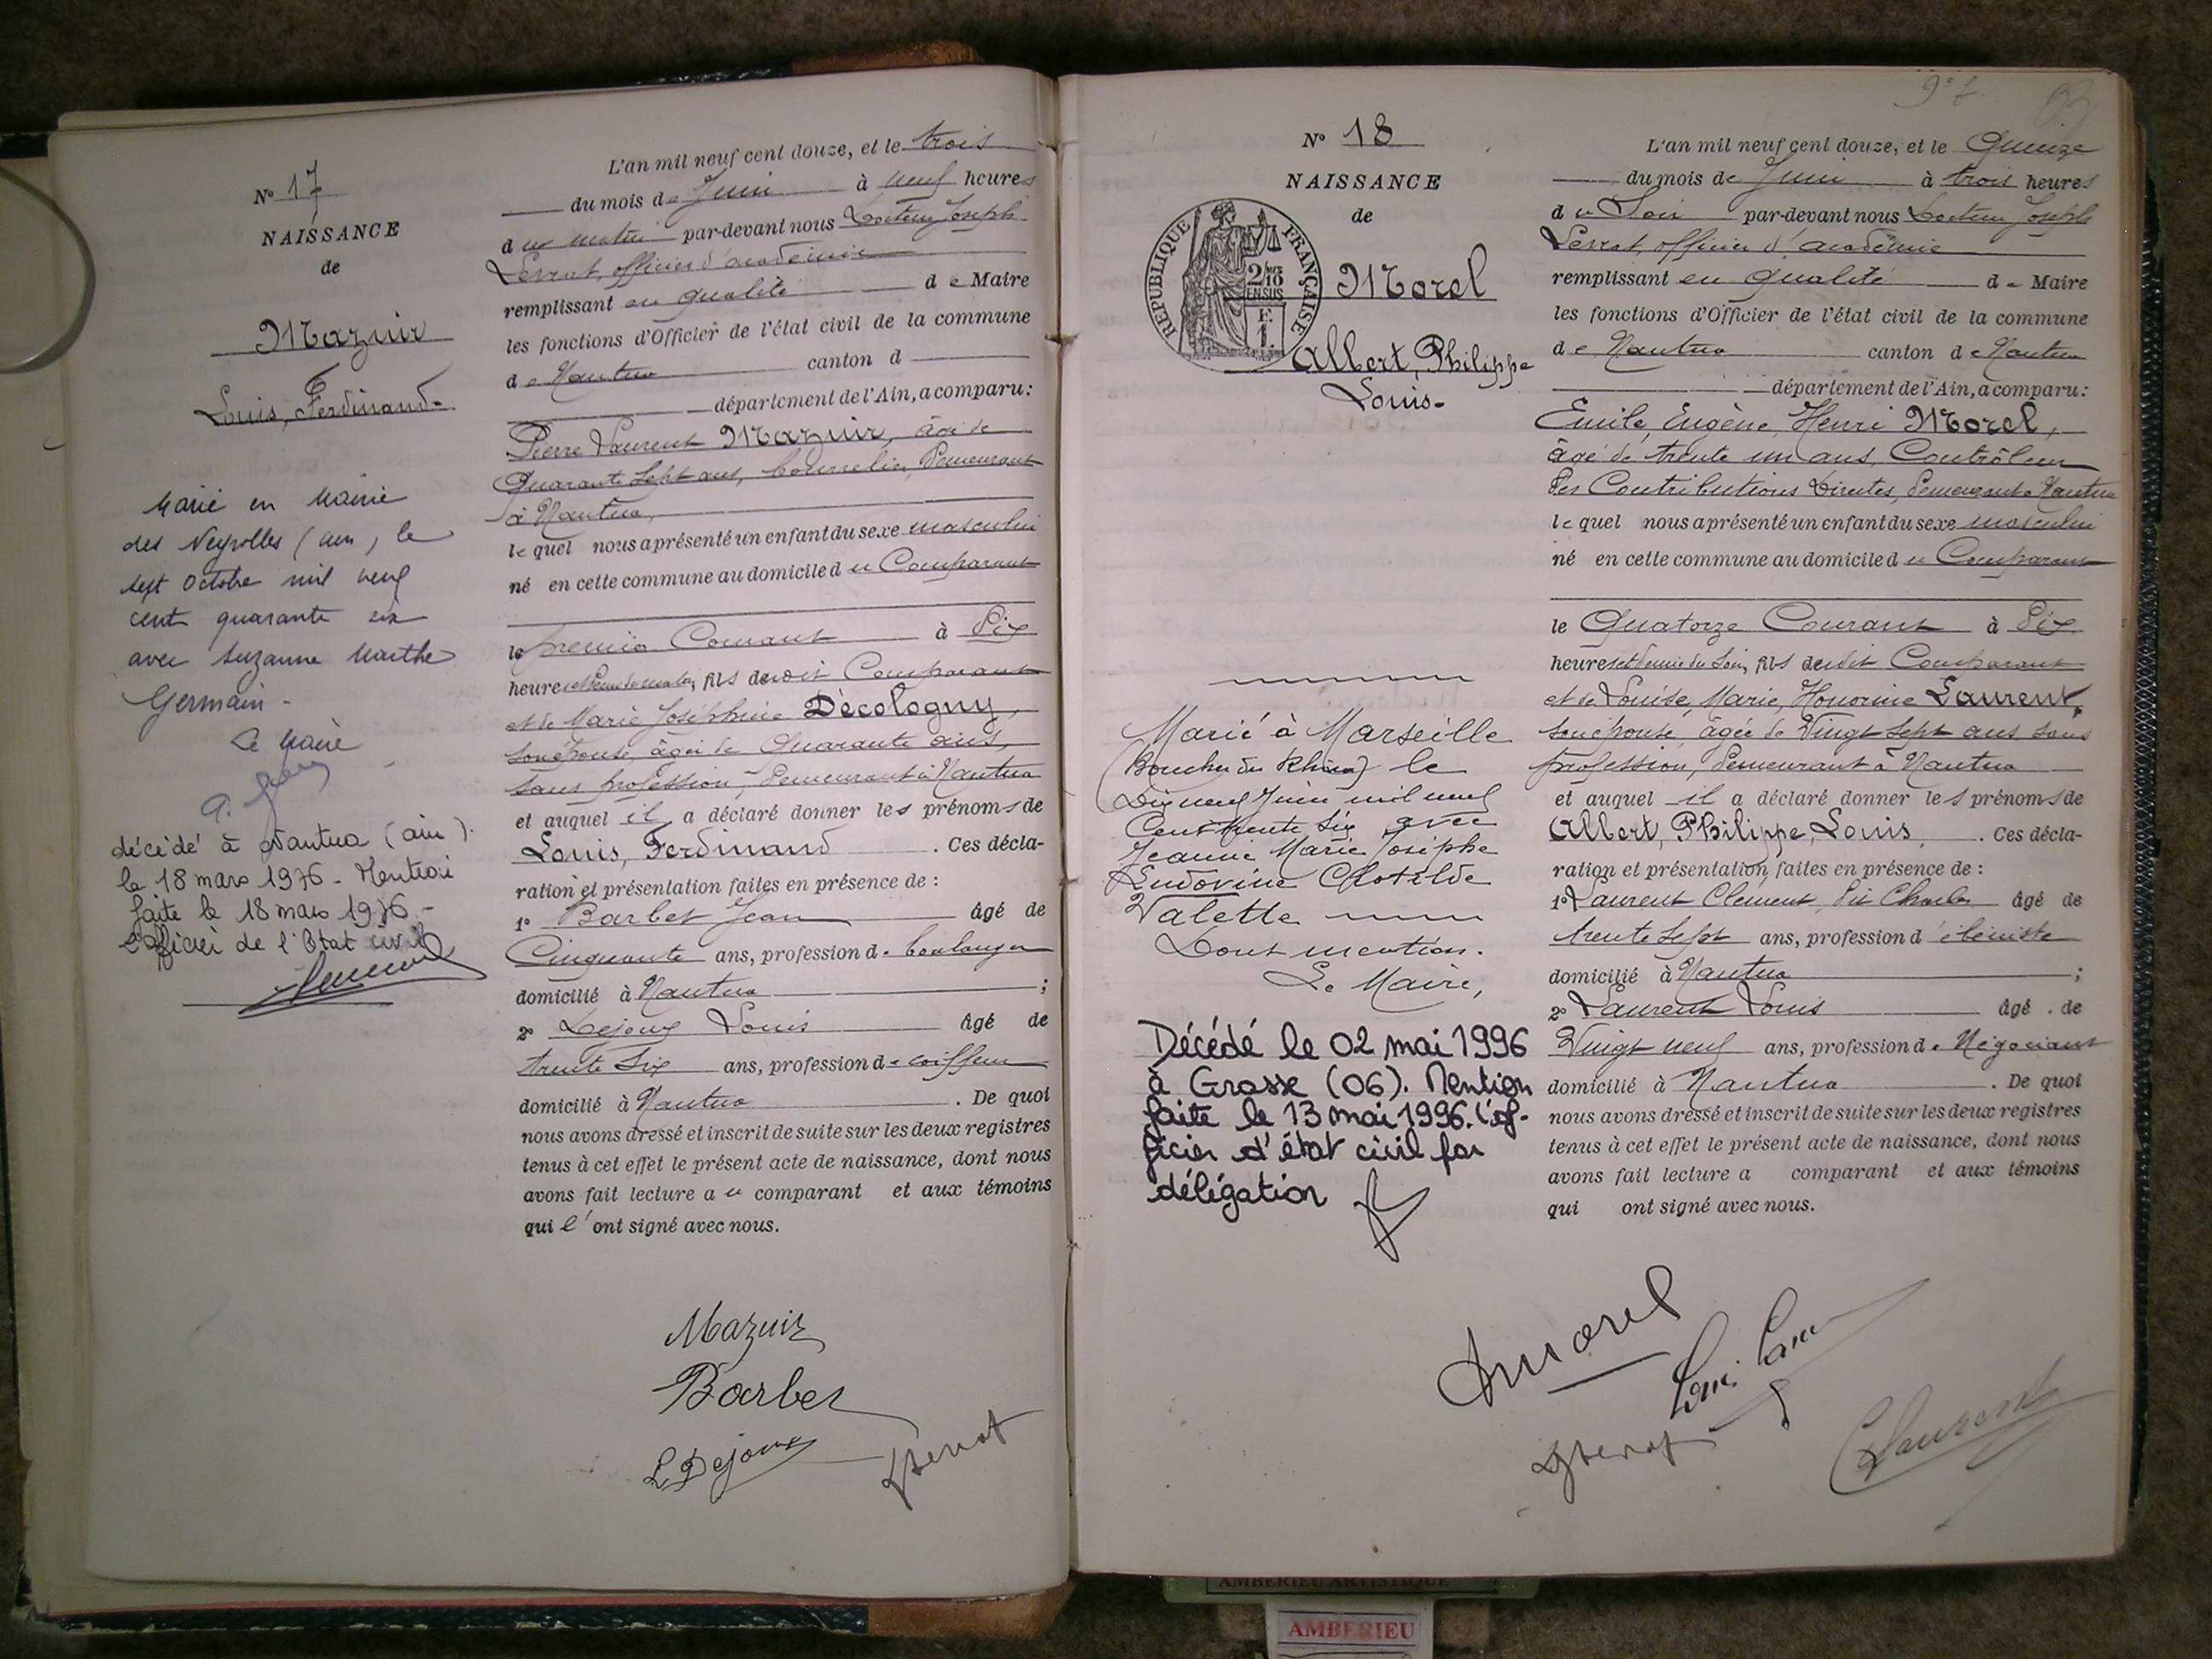 N° 17
NAISSANCE
de
Mazuir
Louis, Ferdinand
Marié en Mairie
des Neyrolles (Ain), le
sept Octobre mil neuf
cent quarante six
avec Suzanne Marthe
Germain -
Le Maire
décédé à Nantua (ain)
le 18 mars 1976 - Mention
faite le 18 mars 1976 -
L'officier de l'Etat civil
L'an mil neuf cent douze, et le trois
du mois de Juin à neuf heures
du matin par-devant nous Docteur Joseph
Levrat, officier d'académie
remplissant en qualité de Maire
les fonctions d'Officier de l'état civil de la commune
de Nantua canton d
département de l'Ain, a comparu :
Pierre Laurent Mazuir, âgé de
Quarante sept ans, bourrelier, demeurant
à Nantua,
lequel nous a présenté un enfant du sexe masculin
né en cette commune au domicile du Comparant
le premier Courant à Dix
heures du matin, fils dudit Comparant
et de Marie Joséphine Décologny,
son épouse, âgée de Quarante ans,
sans profession, demeurant à Nantua
et auquel il a déclaré donner les prénoms de
Louis, Ferdinand . Ces décla-
ration et présentation faites en présence de :
1° Barbet Jean âgé de
Cinquante ans, profession de boulanger
domicilié à Nantua ;
2° Dejoux Louis âgé de
trente six ans, profession de coiffeur
domicilié à Nantua . De quoi
nous avons dressé et inscrit de suite sur les deux registres
tenus à cet effet le présent acte de naissance, dont nous
avons fait lecture au comparant et aux témoins
qui l'ont signé avec nous.
Mazuir
Barbet
L Dejoux
J Levrat
N° 18
NAISSANCE
de
RÉPUBLIQUE FRANÇAISE
2/10
EN SUS
F.
1.
Morel
Albert, Philippe
Louis-
Marié à Marseille
(Bouches du Rhône) le
Dix neuf Juin mil neuf
Cent trente six avec
Jeanne Marie Josèphe
Ludovine Clotilde
Valette
Dont mention.
Le Maire,
Décédé le 02 mai 1996
à Grasse (06). Mention
faite le 13 mai 1996. L'of-
ficier d'état civil par
délégation
L'an mil neuf cent douze, et le Quinze
du mois de Juin à trois heures
du Soir par-devant nous Docteur Joseph
Levrat, officier d'académie
remplissant en qualité de Maire
les fonctions d'Officier de l'état civil de la commune
de Nantua canton de Nantua
département de l'Ain, a comparu :
Emile, Eugène, Henri Morel,
âgé de trente un ans, Contrôleur
des Contributions Directes, demeurant à Nantua
lequel nous a présenté un enfant du sexe masculin
né en cette commune au domicile du Comparant
le Quatorze Courant à Dix
heures et demie du soir, fils dudit Comparant
et de Louise, Marie, Honorine Laurent,
son épouse, âgée de Vingt sept ans sans
profession, demeurant à Nantua
et auquel il a déclaré donner les prénoms de
Albert, Philippe, Louis, . Ces décla-
ration et présentation faites en présence de :
1° Laurent Clément, dit Charles âgé de
trente sept ans, profession d'ébéniste
domicilié à Nantua ;
2° Laurent Louis âgé de
Vingt neuf ans, profession de Négociant
domicilié à Nantua . De quoi
nous avons dressé et inscrit de suite sur les deux registres
tenus à cet effet le présent acte de naissance, dont nous
avons fait lecture a comparant et aux témoins
qui ont signé avec nous.
Morel
J Levrat
C Laurent
AMBERIEU ARTISTIQUE
AMBERIEU